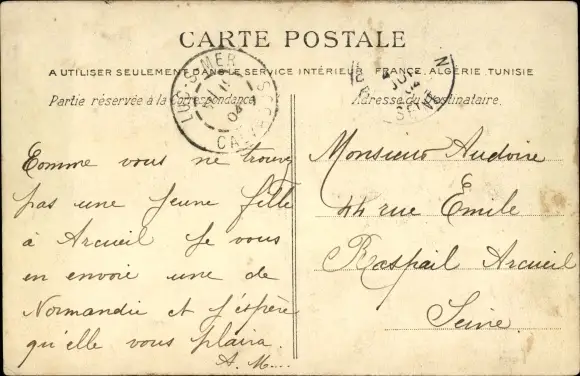 CARTE POSTALE
A UTILISER SEULEMENT DANS LE SERVICE INTÉRIEUR FRANCE, ALGÉRIE, TUNISIE
Partie réservée à la Correspondance
Adresse du Destinataire.
LUC-S-MER
04
CAL
SEINE
Comme vous ne trouvez
pas une jeune fille
à Arcueil Je vous
en envoie une de
Normandie et j'espère
qu'elle vous plaira.
A. M....
Monsieur Audoire
44 rue Émile
Raspail Arcueil
Seine.